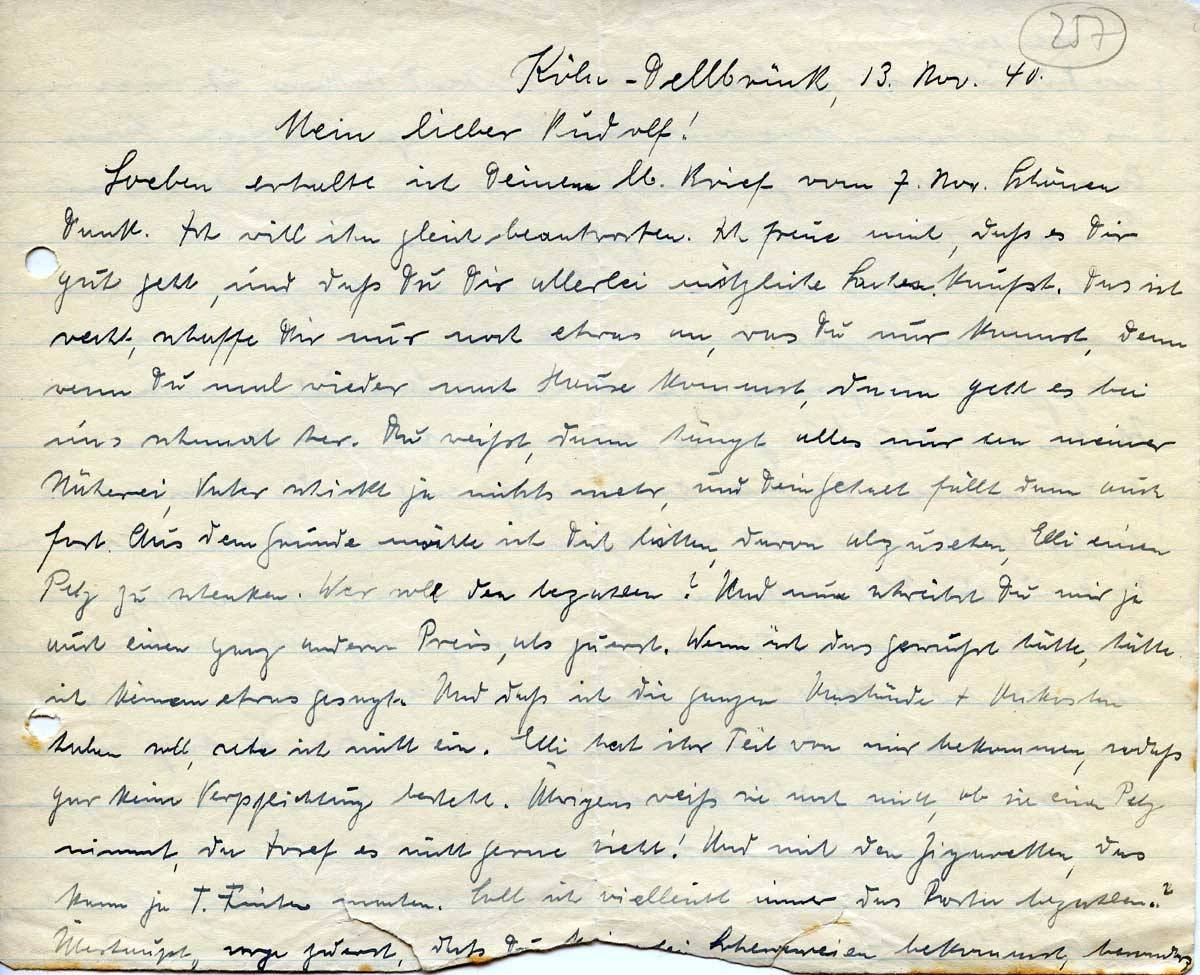 257
Köln-Dellbrück, 13. Nov. 40.
Mein lieber Rudolf!
Soeben erhalte ich Deinen lb. Brief vom 7. Nov. Schönen
Dank. Ich will ihn gleich beantworten. Ich freue mich, daß es Dir
gut geht, und daß Du Dir allerlei nützliche Sachen kaufst. Das ist
recht, schaffe Dir nur noch etwas an, was Du nur kannst, denn
wenn Du mal wieder nach Hause kommst, dann geht es bei
uns schmal her. Du weißt, dann hängt alles nur an meiner
Näherei, Vater schickt ja nichts mehr, und Dein Gehalt fällt dann auch
fort. Aus dem Grunde möchte ich Dich bitten, davon abzusehen, Elli einen
Pelz zu schenken. Wer soll den bezahlen? Und nun schreibst Du mir ja
auch einen ganz andern Preis, als zuerst. Wenn ich das gewußt hätte, hätte
ich keinem etwas gesagt. Und daß ich die ganzen Umstände + Unkosten
haben soll, sehe ich nicht ein. Elli hat ihr Teil von mir bekommen, sodaß
gar keine Verpflichtung besteht. Übrigens weiß sie noch nicht, ob sie einen Pelz
nimmt, da Josef es nicht gerne sieht! Und mit den Zigaretten, das
kann ja T. machen. Soll ich vielleicht immer das Porto bezahlen?
Überhaupt, sorge zuerst, daß Du Scherereien bekommst, besonders